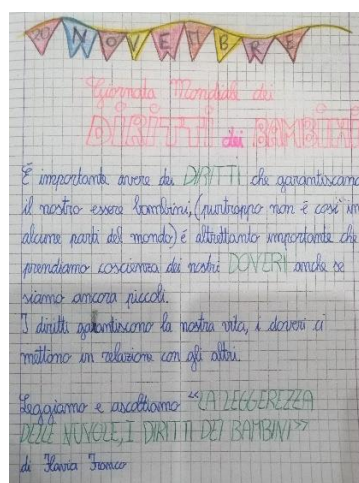 20 NOVEMBRE
Giornata Mondiale dei
DIRITTI dei BAMBINI
È importante avere dei DIRITTI che garantiscano
il nostro essere bambini, (purtroppo non è così in
alcune parti del mondo) è altrettanto importante che
prendiamo coscienza dei nostri DOVERI anche se
siamo ancora piccoli.
I diritti garantiscono la nostra vita, i doveri ci
mettono in relazione con gli altri.
Leggiamo e ascoltiamo "LA LEGGEREZZA
DELLE NUVOLE, I DIRITTI DEI BAMBINI"
di Flavia Franco